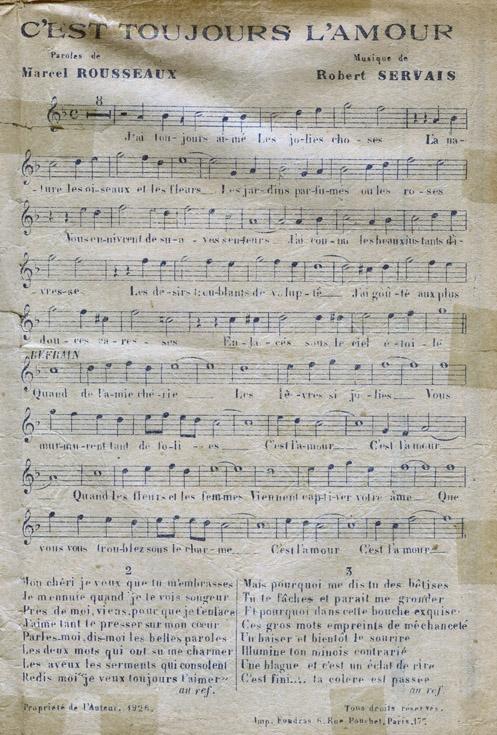 C'EST TOUJOURS L'AMOUR
Paroles de
Marcel ROUSSEAUX
Musique de
Robert SERVAIS
8
J'ai tou-jours ai-mé Les jo-lies cho - ses La na-
-ture les oi-seaux et les fleurs Les jar-dins par-fu-més ou les ro - ses
Nous en-nivrent de su-a - ves sen-teurs J'ai con-nu les beaux instants d'i-
-vres-se Les de-sirs troublants de vo-lup-té J'ai goû-té aux plus
dou-ces ca-res - ses En-la-cés sous le ciel é-toi-lé
REFRAIN
Quand de l'a-mie ché-rie Les lè-vres si jo-lies Vous
mur-mu-rent tant de fo-li - es C'est l'a-mour C'est l'a mour
Quand les fleurs et les fem-mes Viennent cap-ti-ver votre âme Que
vous vous trou-blez sous le char-me C'est l'amour C'est l'a mour
2
Mon chéri je veux que tu m'embrasses
Je m'ennuie quand je te vois songeur
Près de moi, viens, pour que je t'enlace
J'aime tant te presser sur mon cœur
Parles-moi, dis-moi les belles paroles
Les deux mots qui ont su me charmer
Les aveux les serments qui consolent
Redis moi "je veux toujours t'aimer"
au ref.
3
Mais pourquoi me dis tu des bêtises
Tu te fâches et parait me gronder
Et pourquoi dans cette bouche exquise
Ces gros mots empreints de méchanceté
Un baiser et bientôt le sourire
Illumine ton minois contrarié
Une blague et c'est un éclat de rire
C'est fini.... ta colere est passee
au ref
Propriété de l'Auteur, 1926.
Tous droits reservés.
Imp. Foudras 6, Rue Pouchet, Paris, 17e